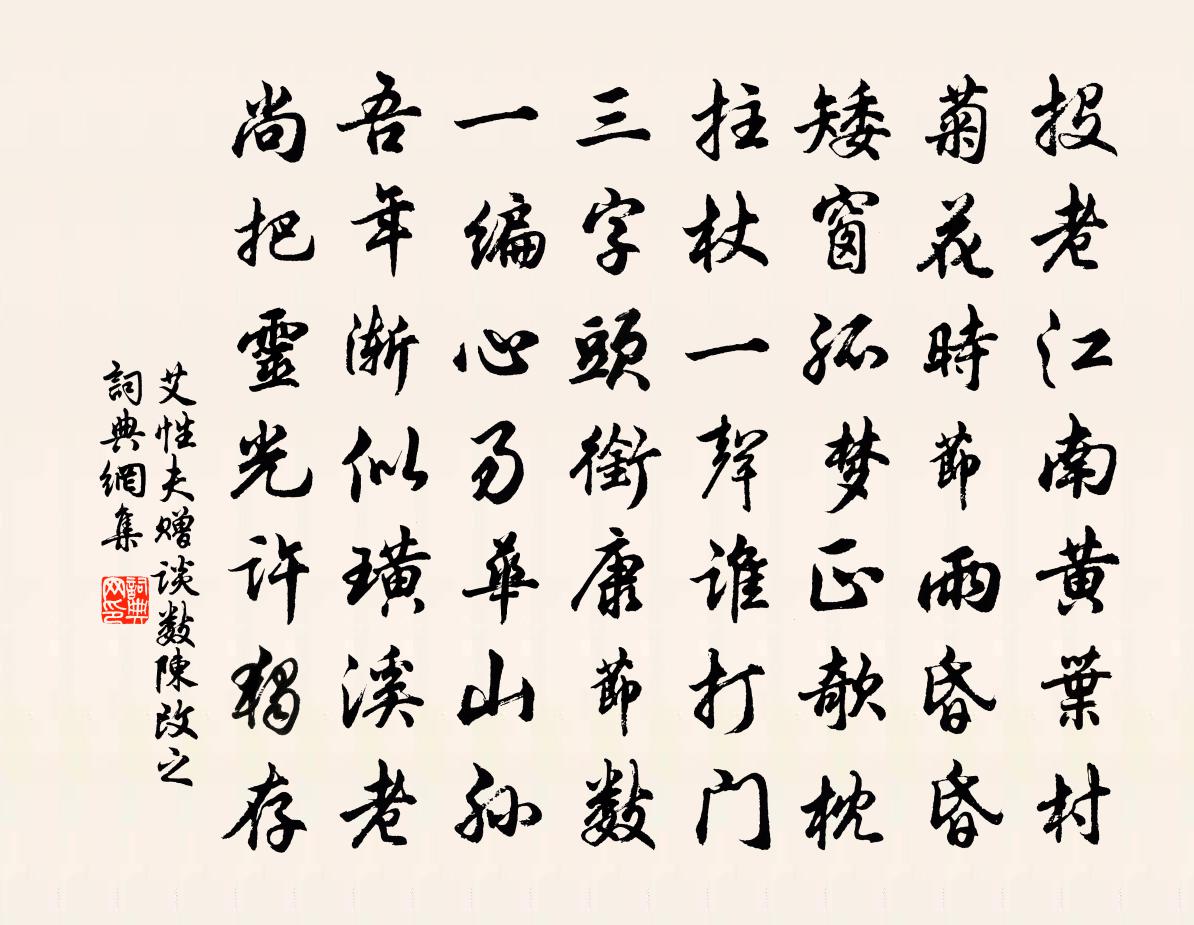 投老江南黄葉村
菊花時節雨昏昏
矮窗孤梦正欹枕
拄杖一聲谁打门
三字頭銜康節數
一编心易華山孙
吾年渐似璜溪老
尚把靈光许独存
艾性夫赠谈數陳改之
詞典網集
詞典网印